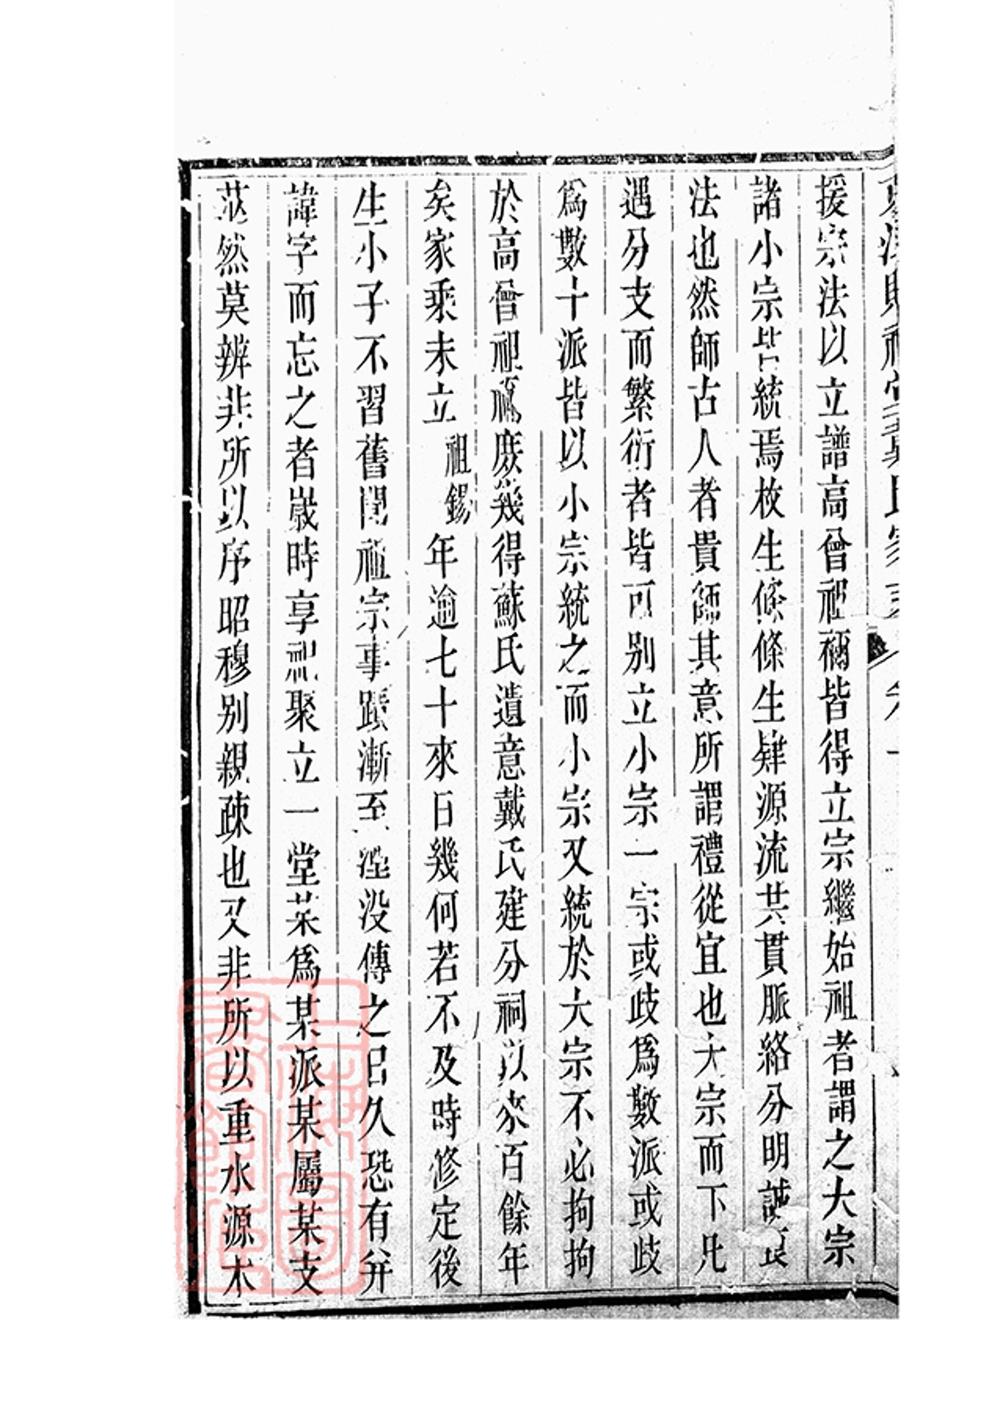 援宗法以立譜高曾祖禰皆得立宗繼始祖者謂之大宗
諸小宗皆統焉枚生條條生肄源流共貫脈絡分明誠良
法也然師古人者貴師其意所謂禮從宜也大宗而下凡
遇分支而繁衍者皆可別立小宗一宗或歧為數派或歧
爲數十派皆以小宗統之而小宗又統於大宗不必拘拘
於高曾祖禰庶幾得蘇氏遺意戴氏建分祠以來百餘年
矣家乘未立祖錫年逾七十來日幾何若不及時修定後
生小子不習舊聞祖宗事蹟漸至湮没傳之已久恐有并
諱字而忘之者嵗時享祀聚立一堂某爲某派某屬某支
茫然莫辨非所以序昭穆別親疎也又非所以重水源木